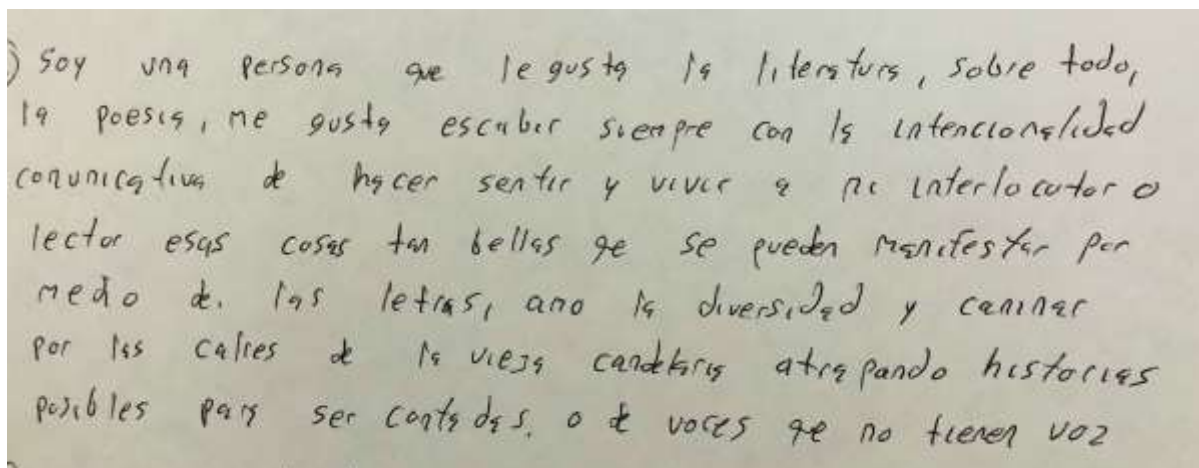 ) Soy una persona que le gusta la literatura, sobre todo,
la poesia, me gusta escribir siempre con la intencionalidad
comunicativa de hacer sentir y vivir a mi interlocutor o
lector esas cosas tan bellas qe se pueden manifestar por
medio de. las letras, amo la diversidad y caminar
por las calles de la vieja candelaria atrapando historias
posibles para ser contadas. o de voces qe no tienen voz